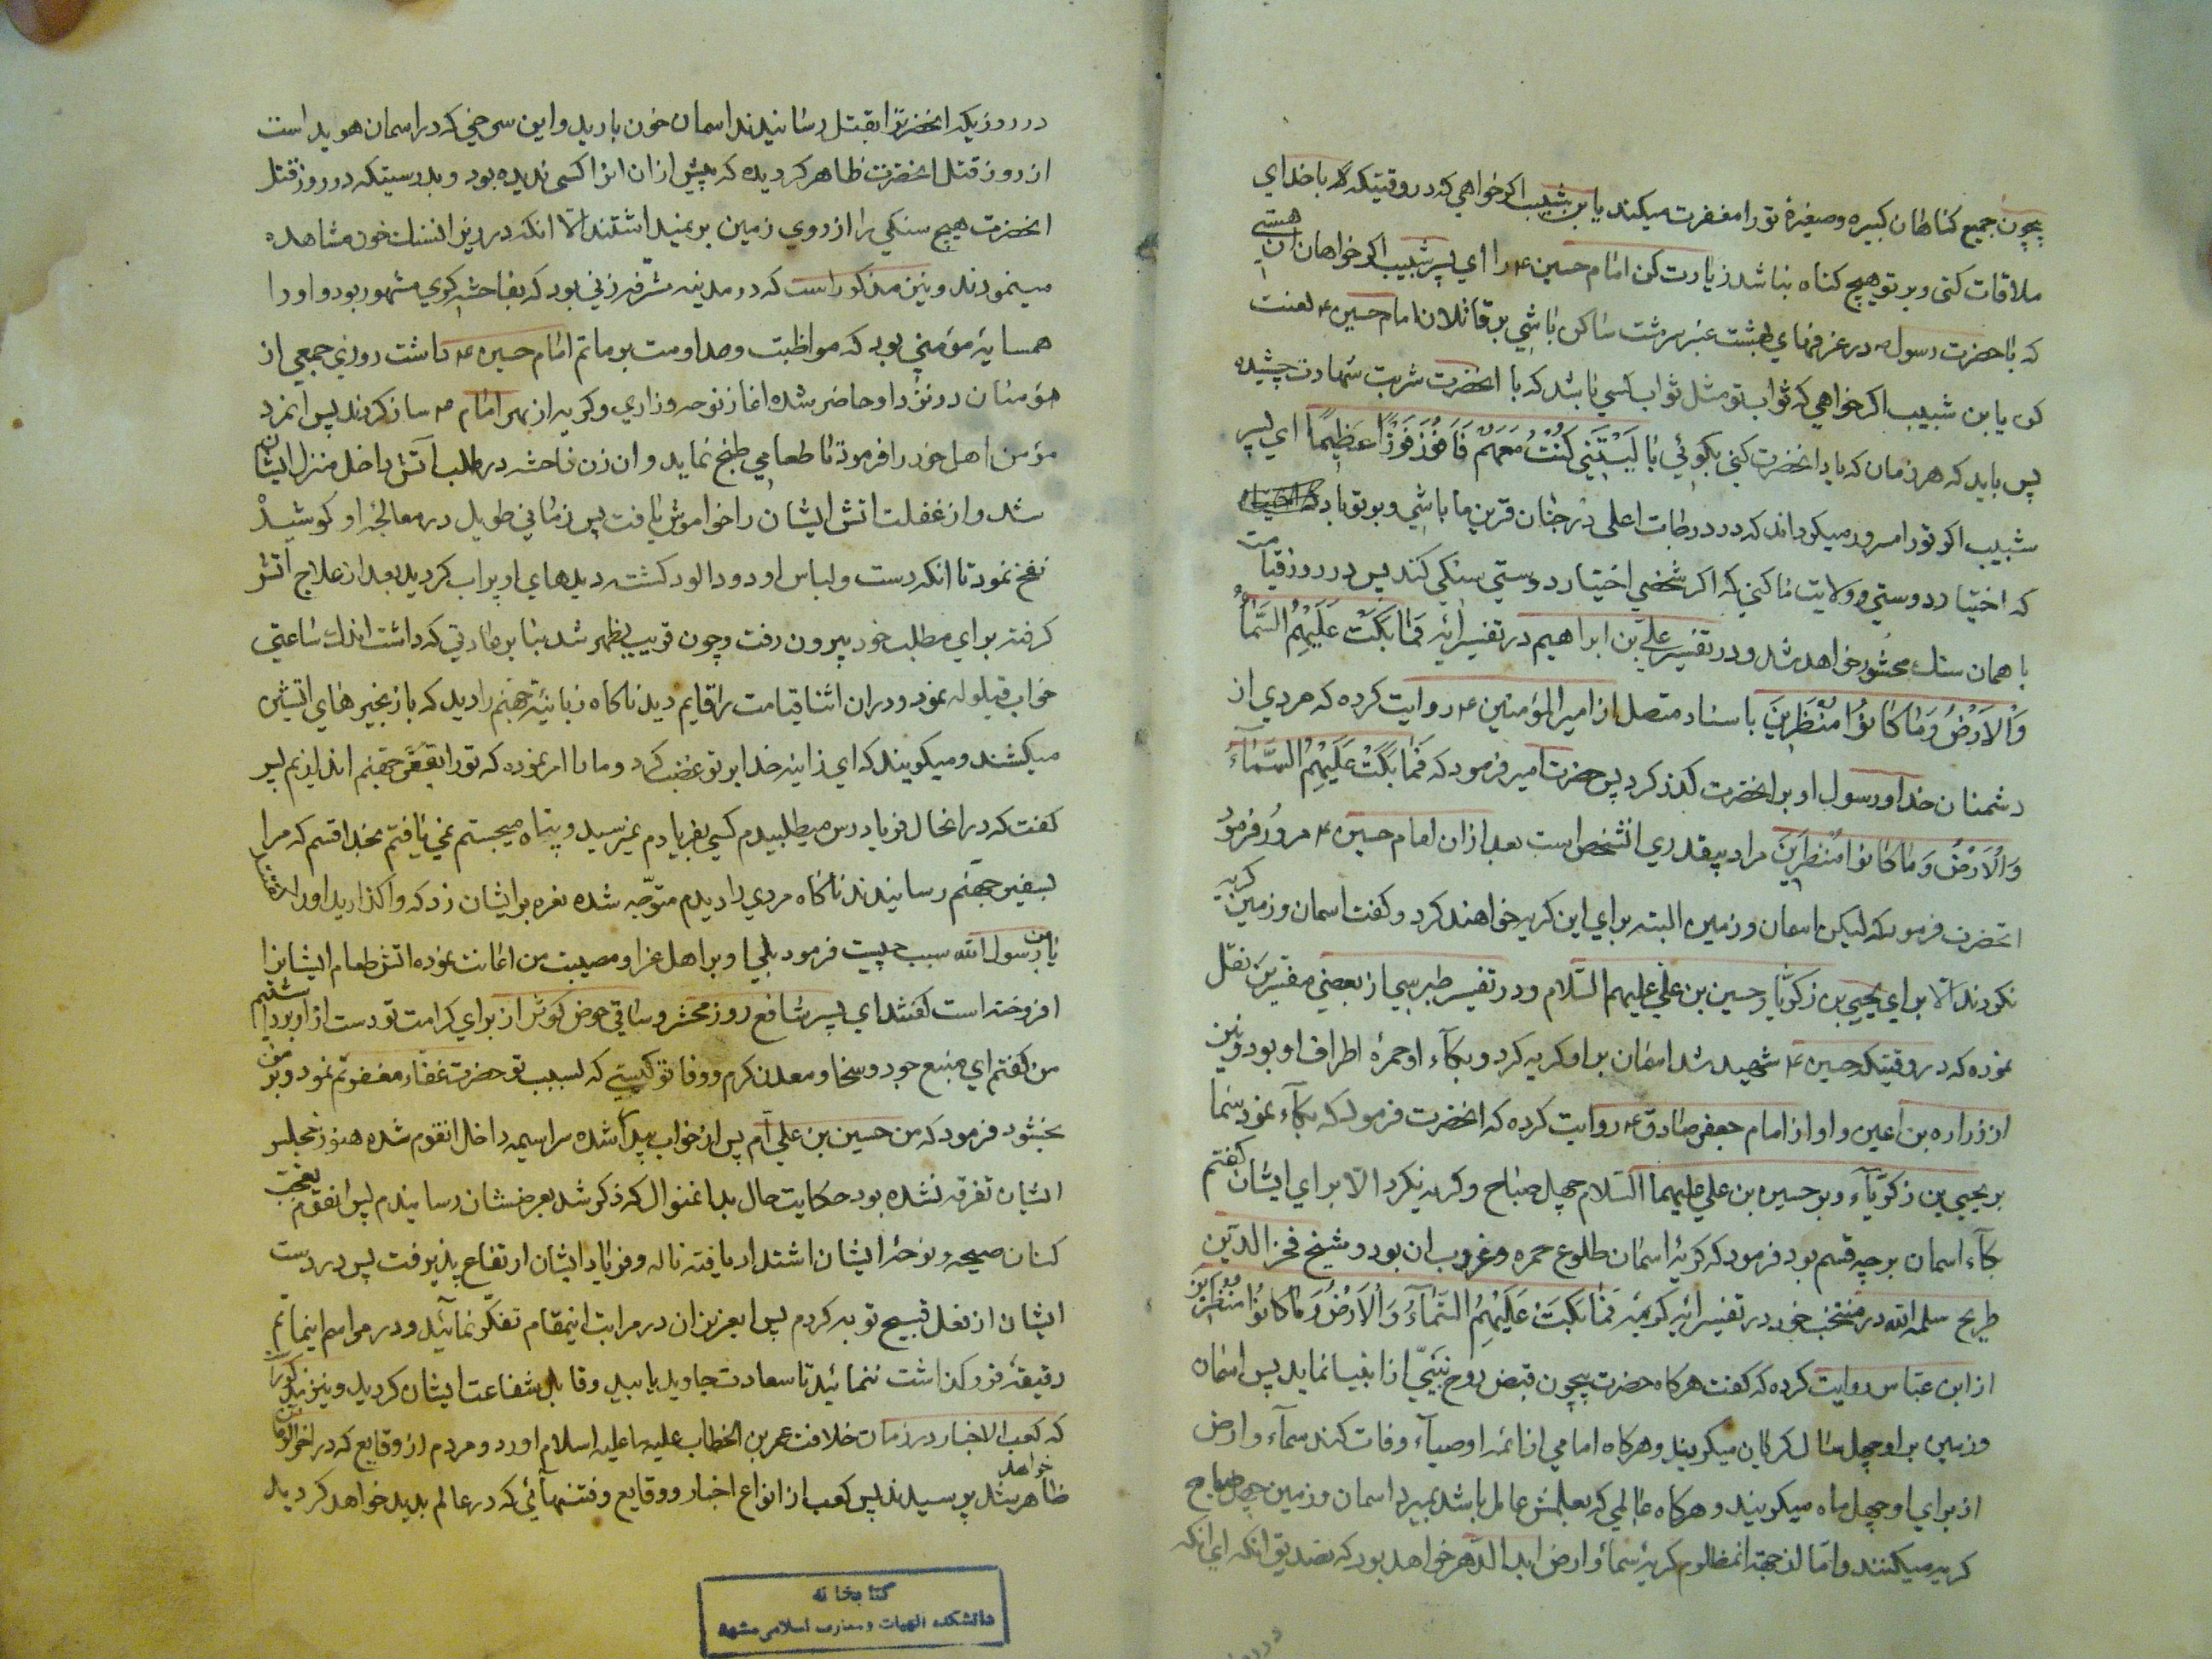 بیچون جمیع کناهان کبیره وصغیرهٔ تورا مغفرت میکند یابن شبیب اکر خواهي که در وقتیکه با خدای
ملاقات کنی وبر تو هیچ کناه نباشد زیارت کن امام حسین ع را ای پسر شبیب اکر خواهان آن هستی
که با حضرت رسول ص در غرفهای بهشت عنبر سرشت ساکن باشي بر قاتلان امام حسین ع لعنت
کن یابن شبیب اکر خواهي که ثواب تو مثل ثواب کسي باشد که با انحضرت شربت شهادت چشیده
پس باید که هر زمان که یاد انحضرت کنی بکوئي یا لَیْتَنِی کُنْتُ مَعَهُمْ فَاَفُوزَ فَوْزًا عَظِیمًا ای پسر
شبیب اکر تورا مسرور میکرداند که در درجات اعلی در جنان قرین ما باشي وبر تو باد
که اختیار دوستي وولایت ما کني که اکر شخصي اختیار دوستي سنکي کند پس در روز قیامت
با همان سنك محشور خواهد شد ودر تفسیر علي بن ابراهیم در تفسیر ایه فَمَا بَکَتْ عَلَیْهِمُ السَّمَاءُ
وَالْاَرْضُ وَمَا کَانُوا مُنْظَرِینَ باسناد متصل از امیر المؤمنین ع روایت کرده که مردي از
دشمنان خدا ورسول او بر انحضرت کذر کرد پس حضرت امیر فرمود که فَمَا بَکَتْ عَلَیْهِمُ السَّمَاءُ
وَالْاَرْضُ وَمَا کَانُوا مُنْظَرِینَ مراد بیقدري انشخص است بعد ازان امام حسین ع مرور فرمود
انحضرت فرمود که لیکن اسمان وزمین البته براي این کریه خواهند کرد وکفت اسمان وزمین کریه
نکردند الا براي یحیي بن زکریا وحسین بن علي علیهم السلام ودر تفسیر طبرسي از بعضي مفسرین نقل
نموده که در وقتیکه حسین ع شهید شد اسمان بر او کریه کرد وبکاء او حمرهٔ اطراف او بود ونیز
از زراره بن اعین واو از امام جعفر صادق ع روایت کرده که انحضرت فرمود که بکاء نمود سما
بر یحیي بن زکریاء وبر حسین بن علي علیهما السلام چهل صباح وکریه نکرد الا براي ایشان کفتم
بکاء اسمان بر چه قسم بود فرمود که کریهٔ اسمان طلوع حمره وغروب ان بود وشیخ فخر الدین
طریح سلمه الله در منتخب خود در تفسیر ایه کریمه فَمَا بَکَتْ عَلَیْهِمُ السَّمَاءُ وَالْاَرْضُ وَمَا کَانُوا مُنْظَرِینَ
از ابن عباس روایت کرده که کفت هرکاه حضرت بیچون قبض روح نبيّ از انبیا نماید پس اسمان
وزمین بر او چهل سال کریان میکویند وهرکاه امامي از ائمه اوصیاء وفات کند سماء وارض
از براي او چهل ماه میکویند وهرکاه عالمي که بعلمش عامل باشد بمیرد اسمان وزمین چهل صباح
کریه میکنند واما از جهة انمظلوم کریهٔ سماء وارض ابد الدهر خواهد بود که تصدیق انکه اي انکه
در روز
در روزیکه انحضرترا بقتل رسانیدند اسمان خون بارید واین سرخي که در اسمان هویداست
از روز قتل انحضرت ظاهر کردیده که پیش ازان انرا کسی ندیده بود وبدرستیکه در روز قتل
انحضرت هیچ سنکي را از روي زمین بر نمیداشتند الا انکه در زیر انسنك خون مشاهده
مینمودند ونیز مذکور است که در مدینه مشرفه زني بود که بفاحشه کري مشهور بود واورا
همسایه مؤمني بود که مواظبت ومداومت بر ماتم امام حسین ع داشت روزي جمعي از
مؤمنان در نزد او حاضر شده اغاز نوحه وزاري وکریه از بهر امام ع ساز کردند پس انمرد
مؤمن اهل خود را فرمود تا طعامي طبخ نماید وان زن فاحشه در طلب آتش داخل منزل ایشان
شد واز غفلت اتش ایشان را خواموش یافت پس زماني طویل در معالجهٔ او کوشید
نفخ نمود تا انکه دست ولباس او دود الود کشته دیدهاي او پر اب کردید بعد از علاج آتش
کرفته براي مطلب خود بیرون رفت وچون قریب بظهر شد بنا بر عادتي که داشت اندك ساعتي
خواب قیلوله نمود ودران اثنا قیامت را قایم دید ناکاه زبانیهٔ جهنم را دید که با زنجیرهاي اتشین
میکشند ومیکویند که اي زانیه خدا بر تو غضب کرد ومارا امر نموده که تورا بقعر جهنم اندازیم پس
کفت که در انحال فریادرس میطلبیدم کسي بفریادم نمیرسید وپناه میجستم نمي یافتم بخدا قسم که مرا
بشفیر جهنم رسانیدند ناکاه مردي را دیدم متوجه شده نعره بر ایشان زد که واکذارید اورا کفتند
یابن رسول الله سبب چیست فرمود بلي او بر اهل عزا ومصیبت من اعانت نموده اتش طعام ایشانرا
افروخته است کفتند اي پسر شافع روز محشر وساقي حوض کوثر از براي کرامت تو دست از او برداشتیم
من کفتم اي منبع جود وسخا ومعدن کرم ووفا تو کیستي که بسبب تو حضرت غفار مغفرتم نمود وبر من
بخشود فرمود که من حسین بن علي ام پس از خواب بیدار شده سراسیمه داخل انقوم شده هنوز مجلس
ایشان تفرقه نشده بود حکایت حال بدانمنوال که ذکر شد بعرضشان رسانیدم پس انقوم تعجب
کنان صیحه ونوحهٔ ایشان اشتداد یافته ناله وفریاد ایشان ارتفاع پذیرفت پس در دست
ایشان از فعل قبیح توبه کردم پس ایعزیزان در مراتب اینمقام تفکر نمائید ودر مراسم اینماتم
دقیقهٔ فرو کذاشت ننمائید تا سعادت جاوید یابید وقابل شفاعت ایشان کردید ونیز مذکور است
که کعب الاحبار در زمان خلافت عمر بن الخطاب علیه ما علیه اسلام اورد ومردم از وقایع که در اخر الزمان
ظاهر خواهد شد پرسیدند پس کعب از انواع اخبار ووقایع وفتنهائي که در عالم پدید خواهد کردید
کتابخانه
دانشکده الهیات و معارف اسلامی مشهد